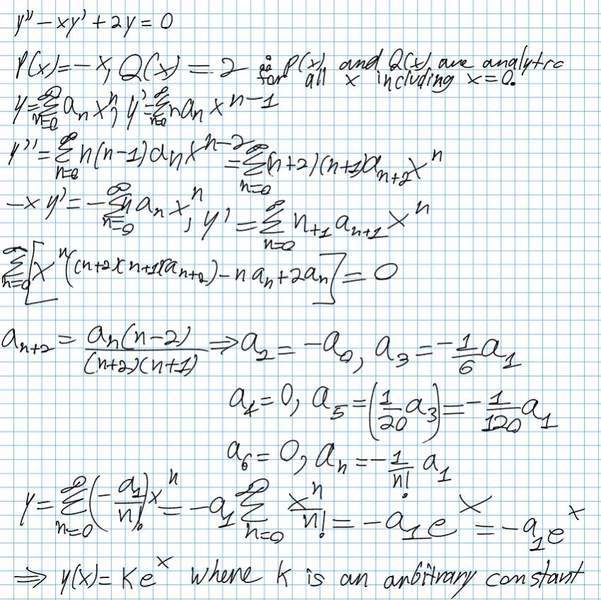 y'' - xy' + 2y = 0
P(x) = -x, Q(x) = 2 ∴ P(x) and Q(x) are analytic
for all x including x=0.
y = ∑_{n=0}^{∞} a_n x^n, y' = ∑_{n=0}^{∞} n a_n x^{n-1}
y'' = ∑_{n=0}^{∞} n(n-1) a_n x^{n-2} = ∑_{n=0}^{∞} (n+2)(n+1) a_{n+2} x^n
-xy' = -∑_{n=0}^{∞} n a_n x^n, y' = ∑_{n=0}^{∞} n+1 a_{n+1} x^n
∑_{n=0}^{∞} [x^n ((n+2)(n+1)a_{n+2}) - n a_n + 2a_n] = 0
a_{n+2} = a_n(n-2)/((n+2)(n+1)) ⇒ a_2 = -a_0, a_3 = -1/6 a_1
a_4 = 0, a_5 = (1/20 a_3) = -1/120 a_1
a_6 = 0, a_n = -1/n! a_1
y = ∑_{n=0}^{∞} (-a_1/n!) x^n = -a_1 ∑_{n=0}^{∞} x^n/n! = -a_1 e^x = -a_1 e^x
⇒ y(x) = Ke^x where K is an arbitrary constant